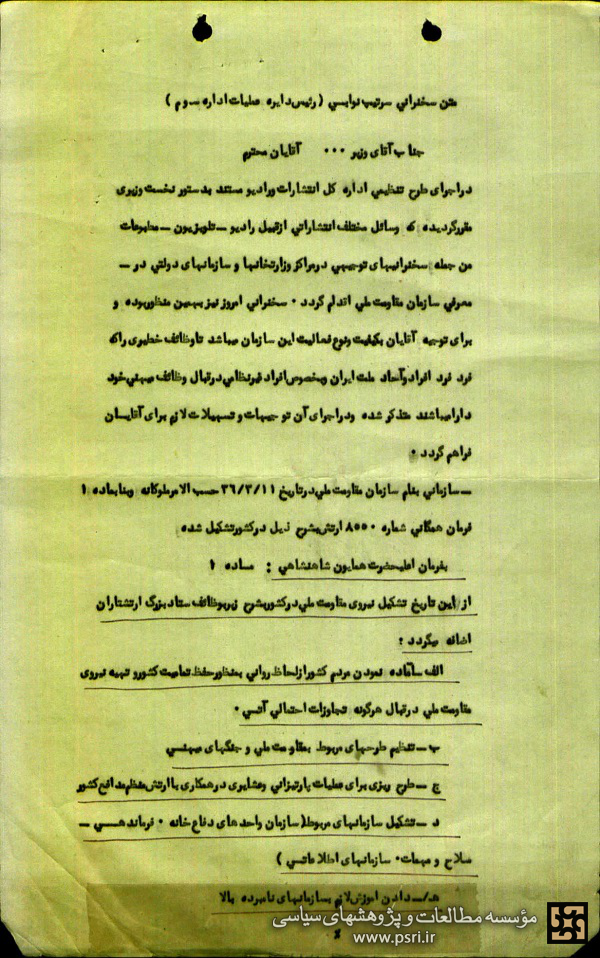 متن سخنراني سرتيپ نوايسي ( رئيس دايره عمليات اداره سوم )
جناب آقای وزير ۰۰۰ آقايان محترم
دراجرای طرح تنظيمي اداره کل انتشارات وراديو مستند بدستور نخست وزيری
مقررگرديده که وسائل مختلف انتشاراتي ازقبيل راديو ــ تلويزيون ــ مطبوعات
من جمله سخنرانيهای توجيهي درمراکز وزارتخانها و سازمانهای دولتي در ــ
معرفي سازمان مقاومت ملي اقدام گردد ۰ سخنراني امروز نيز بهمين منظوربوده و
برای توجيه آقايان بکيفيت ونوع فعاليت اين سازمان ميباشد تاوظائف خطيری راکه
فرد فرد افراد وآحاد ملت ايران وبخصوص افراد غيرنظامي درقبال وظائف ميهني خود
دارا ميباشند متذکر شده ودراجرای آن توجيهات و تسهيلات لازم برای آقايسان
فراهم گردد ۰
ــ سازماني بنام سازمان مقاومت ملي درتاريخ ۳٦/۳/۱۱ حسب الامرملوکانه وبنابماده ۱
فرمان همگاني شماره ۸۵۵۰ ارتش بشرح ذيل درکشورتشکيل شده
بفرمان اعليحضرت همايون شاهنشاهي : مساده ۱
از اين تاريخ تشکيل نيروی مقاومت ملي درکشوربشرح زيربوظائف ستاد بزرگ ارتشتاران
اضافه ميگردد :
الف ــ آماده نمودن مردم کشورازلحاظ رواني بمنظورحفظ تماميت کشورو تهيه نيروی
مقاومت ملي درقبال هرگونه تجاوزات احتمالي آتسي ۰
ب ــ تنظيم طرحهای مربوط بمقاومت ملي و جنگهای ميهنسي
ج ــ طرح ريزی برای عمليات پارتيزاني وعشايری درهمکاری باارتش منظم مدافع کشور
د ــ تشکيل سازمانهای مربوط( سازمان واحدهای دفاع خانه ۰ فرماندهسي ــ
سلاح و مهمات۰ سازمانهای اطلاعاتسي )
هـ ــ دادن آموزش لازم بسازمانهای نامبرده بالا
مؤسسه مطالعات و پژوهشهای سیاسی
www.psri.ir